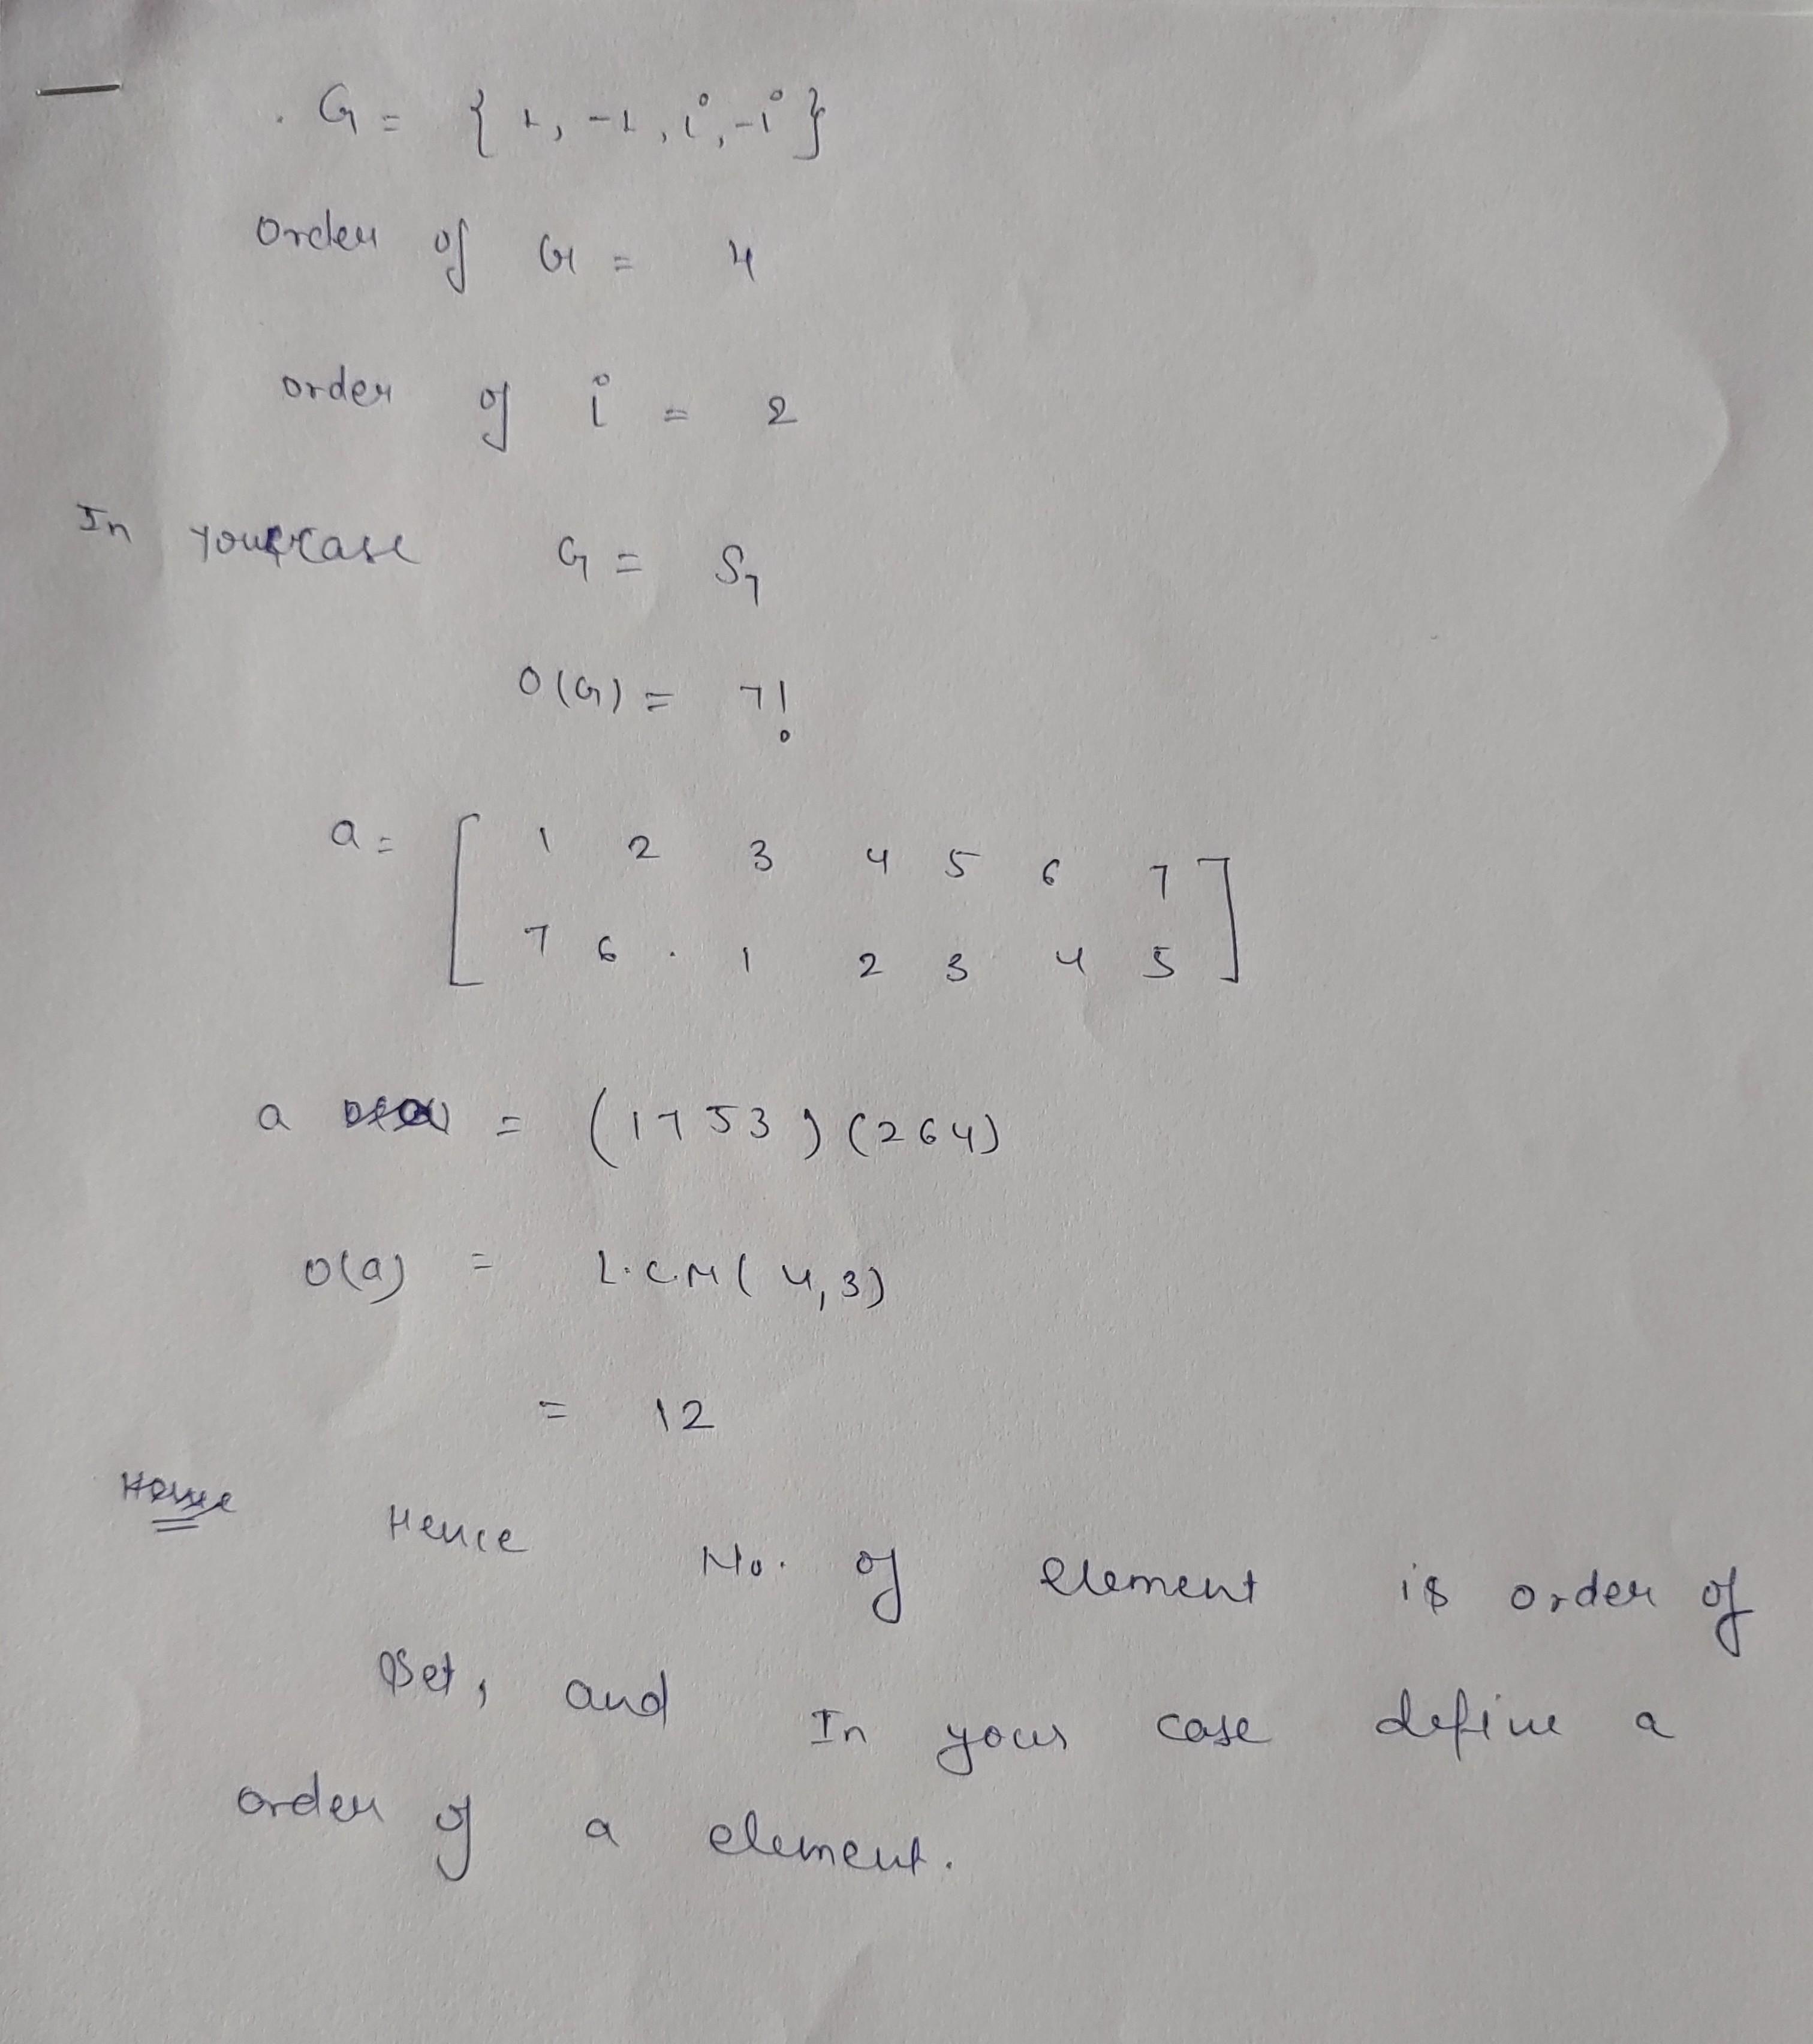 G = { 1, -1, i, -i }
Order of G = 4
order of i = 2
In your case G = S7
O(G) = 7!
a = [ 1 2 3 4 5 6 7
7 6 . 1 2 3 4 5 ]
a = (1753) (264)
O(a) = L.C.M ( 4, 3)
= 12
Hence No. of element is order of
Set, and In your case define a
order of a element.